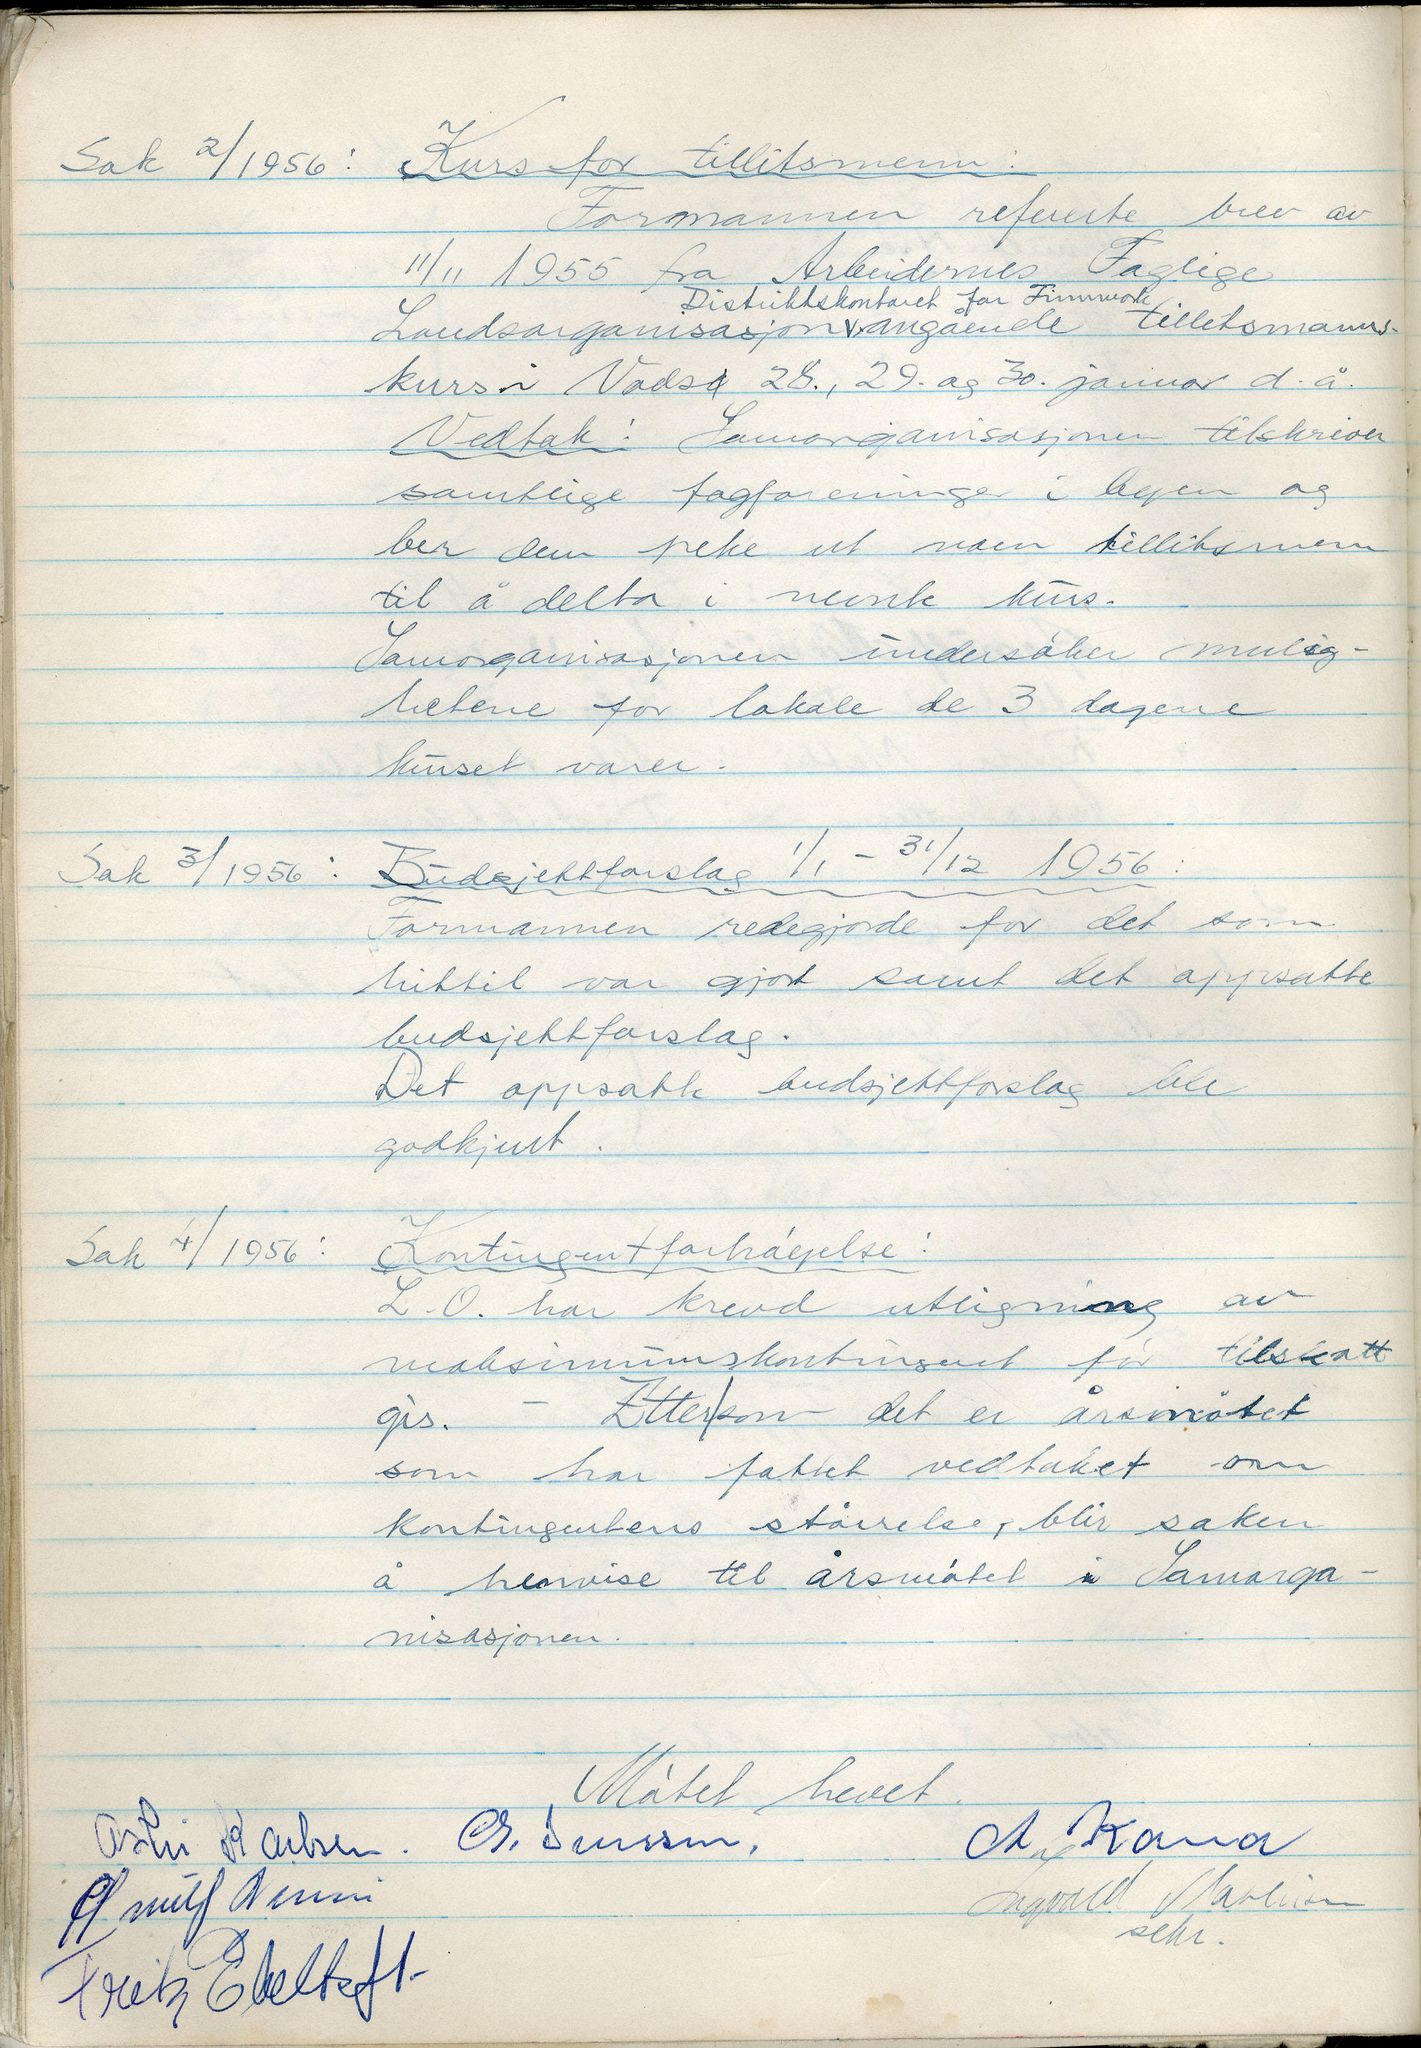 Sak 2/1956: Kurs for tillitsmenn:
Formannen refererte brev av
11/11 1955 fra Arbeidernes Faglige
Distriktskontoret for Finnmark
Landsorganisasjon v angående tillitsmanns-
kurs i Vadsø 28., 29. og 30. januar d.å.
Vedtak: Samorganisasjonen tilskriver
samtlige fagforeninger i byen og
ber dem peke ut noen tillitsmenn
til å delta i nevnte kurs.
Samorganisasjonen undersøker mulig-
hetene for lokale de 3 dagene
kurset varer.
Sak 3/1956: Budsjettforslag 1/1 - 31/12 1956:
Formannen redegjorde for det som
hittil var gjort samt det oppsatte
budsjettforslag.
Det oppsatte budsjettforslag ble
godkjent.
Sak 4/1956: Kontingentforhøyelse:
L.O. har krevd utligning av
maksimumskontingent før tilskott
gis. - Ettersom det er årsmøtet
som har fattet vedtaket om
kontingentens størrelse, blir saken
å henvise til årsmøtet i Samorga-
nisasjonen.
Møtet hevet.
Karlsen. A. Kana
Ingvald
sekr.
Fritz Ebeltoft